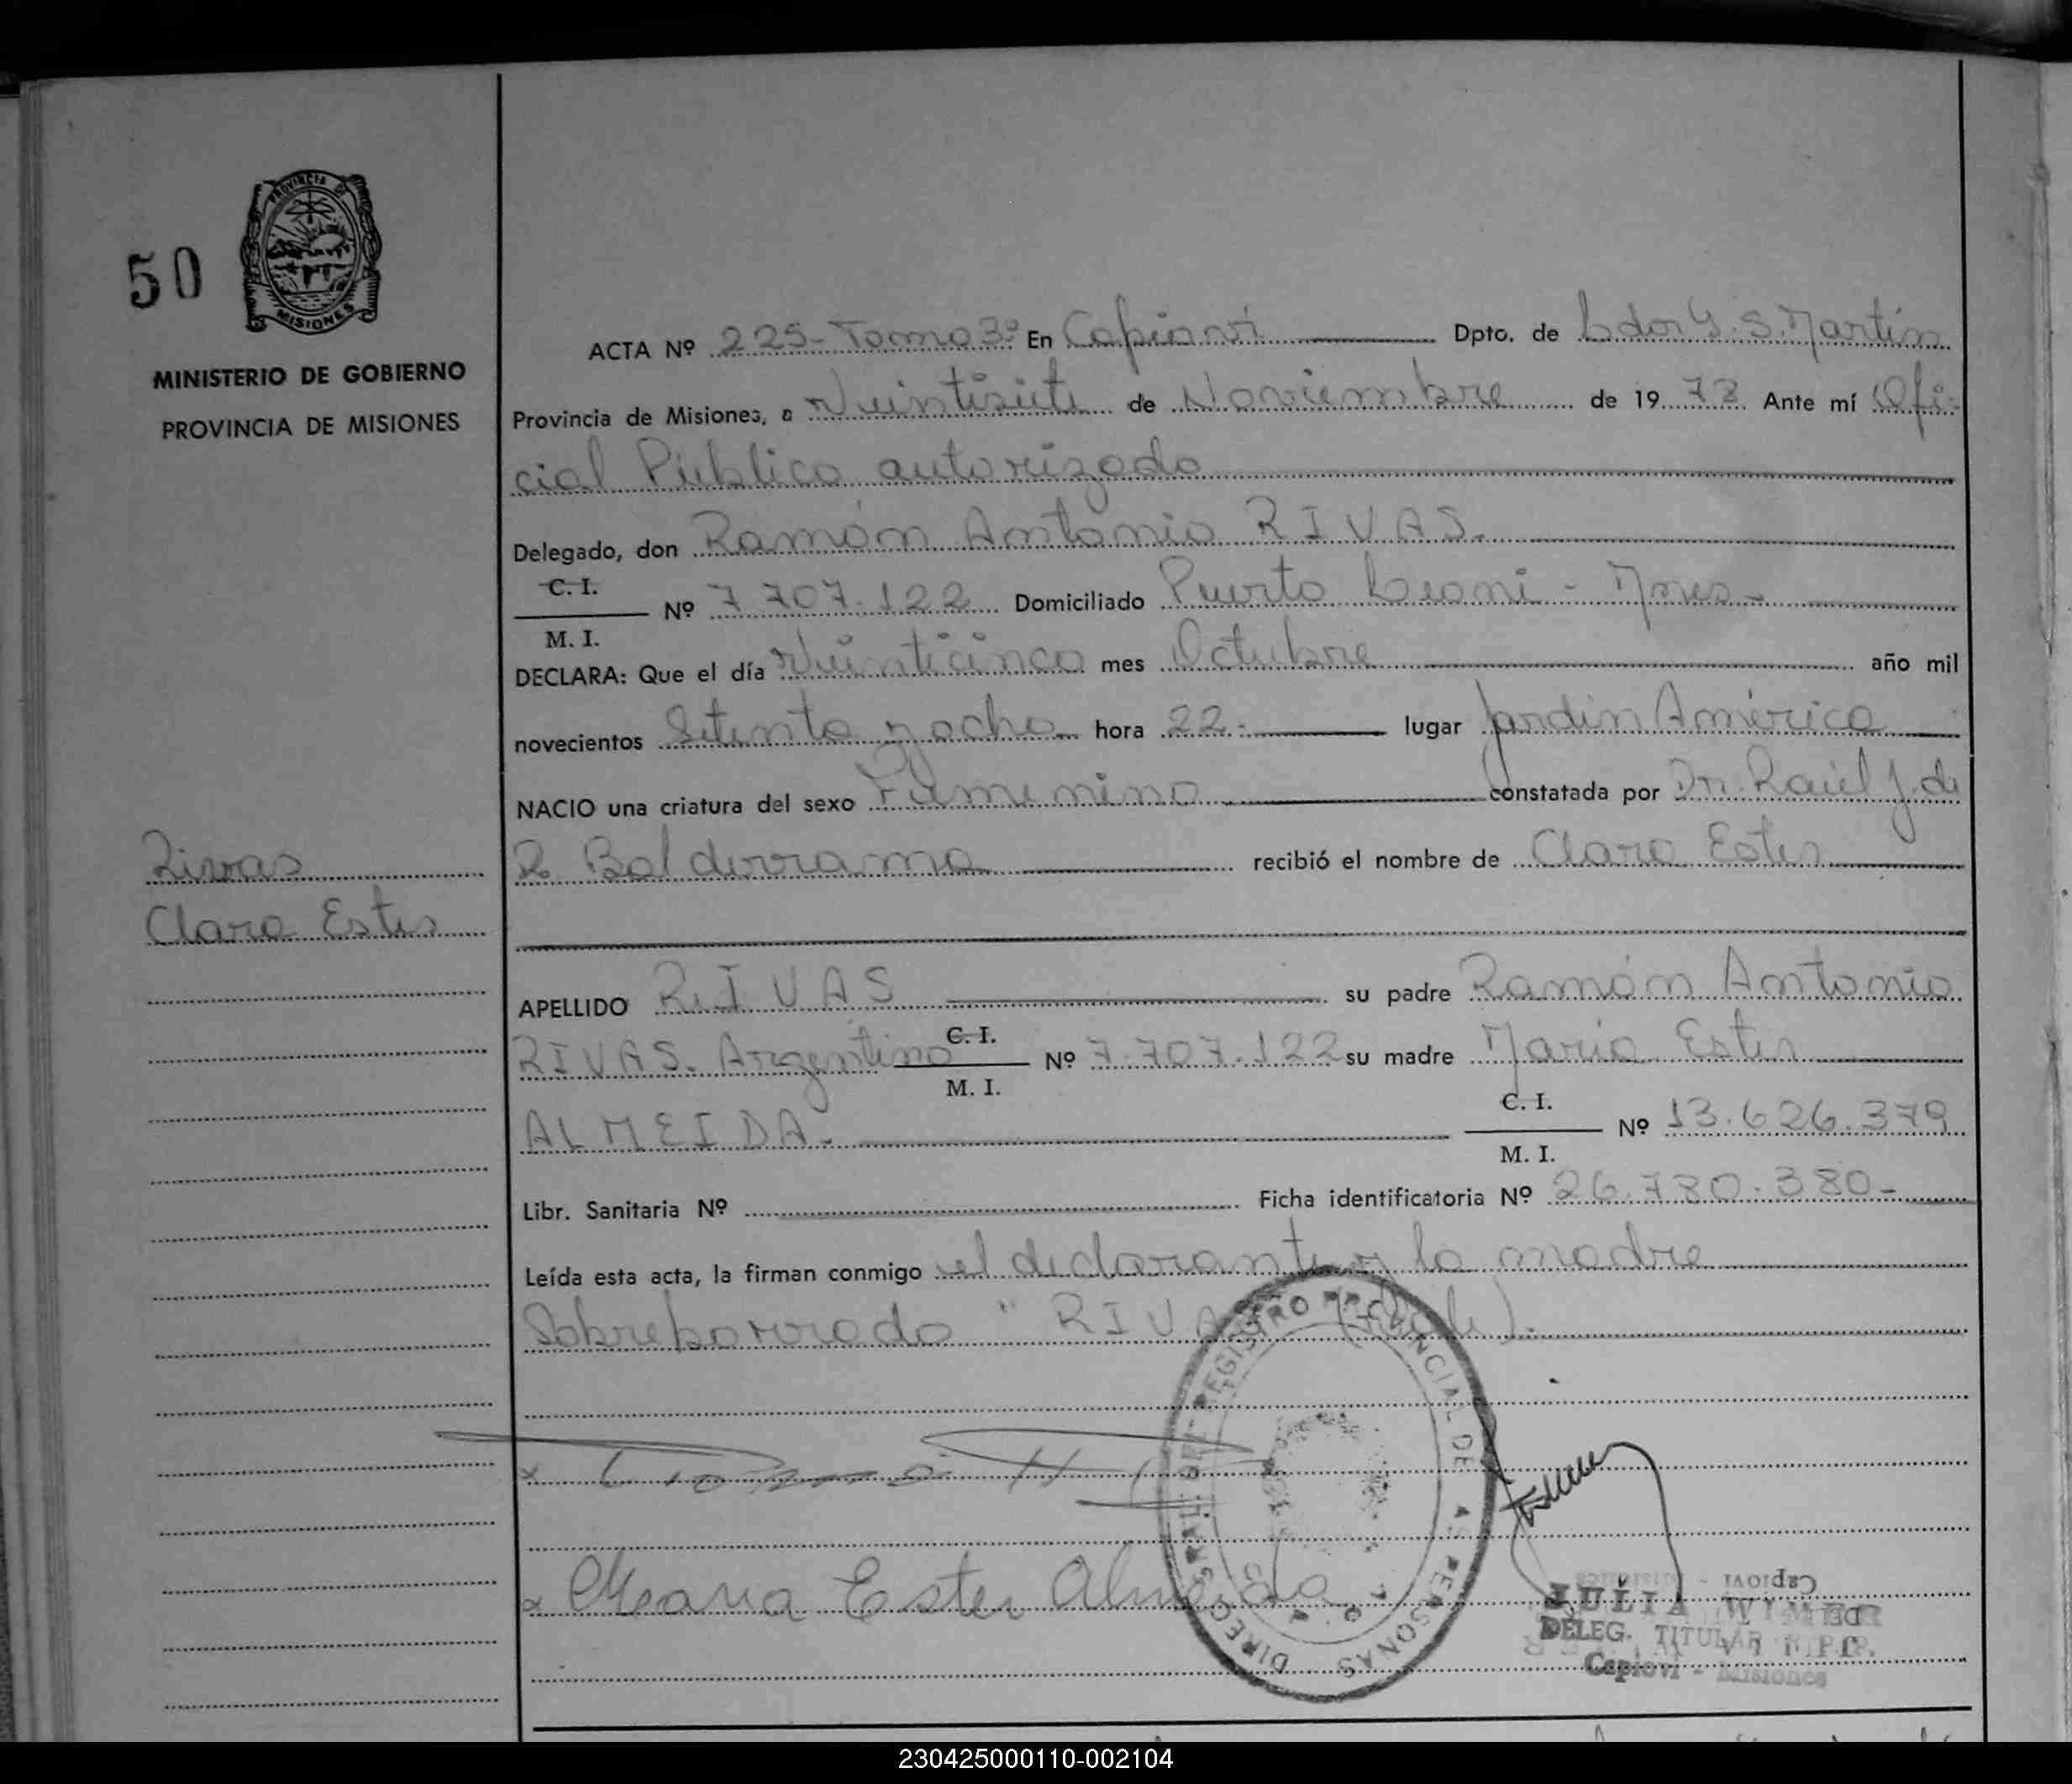 50
PROVINCIA DE
MISIONES
MINISTERIO DE GOBIERNO
PROVINCIA DE MISIONES
Rivas
Clara Ester
ACTA Nº 225- Tomo 3º En Capioví Dpto. de Ldor G. S. Martín
Provincia de Misiones, a Veintisiete de Noviembre de 19 78 Ante mí Ofi-
cial Público autorizado
Delegado, don Ramón Antonio RIVAS.
C. I.
M. I. Nº 7 707.122 Domiciliado Puerto Leoni - Mnes-
DECLARA: Que el día Veinticinco mes Octubre año mil
novecientos Setenta y ocho hora 22- lugar Jardín América
NACIO una criatura del sexo Femenino constatada por Dr. Raúl J. de
R. Balderrama recibió el nombre de Clara Ester
APELLIDO RIVAS su padre Ramón Antonio
RIVAS. Argentino C. I. M. I. Nº 7.707.122 su madre María Ester
ALMEIDA- C. I. M. I. Nº 13.626.379
Libr. Sanitaria Nº Ficha identificatoria Nº 26.780.380-
Leída esta acta, la firman conmigo el declarante y la madre
Sobreborrado "RIVAS (Vale).
x
x Maria Ester Almeida
DIREC. GRAL. DEL REGISTRO PROVINCIAL DE LAS PERSONAS
JULIA WIMER
DELEG. TITULAR R.P.P.
Capioví - Misiones
230425000110-002104